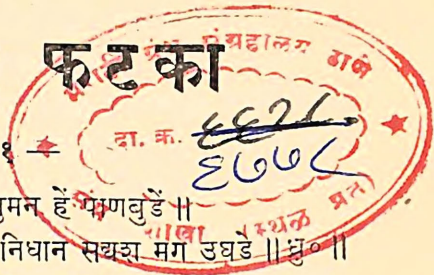 फटका
संग्रहालय ठाणे
दा. क्र. ६६२८
६७७८
— १ —
सुमन हें पाणबुडें ॥
निधान सद्यश मग उघडे ॥ध्रु०॥
शाखा (स्थळ प्रत)